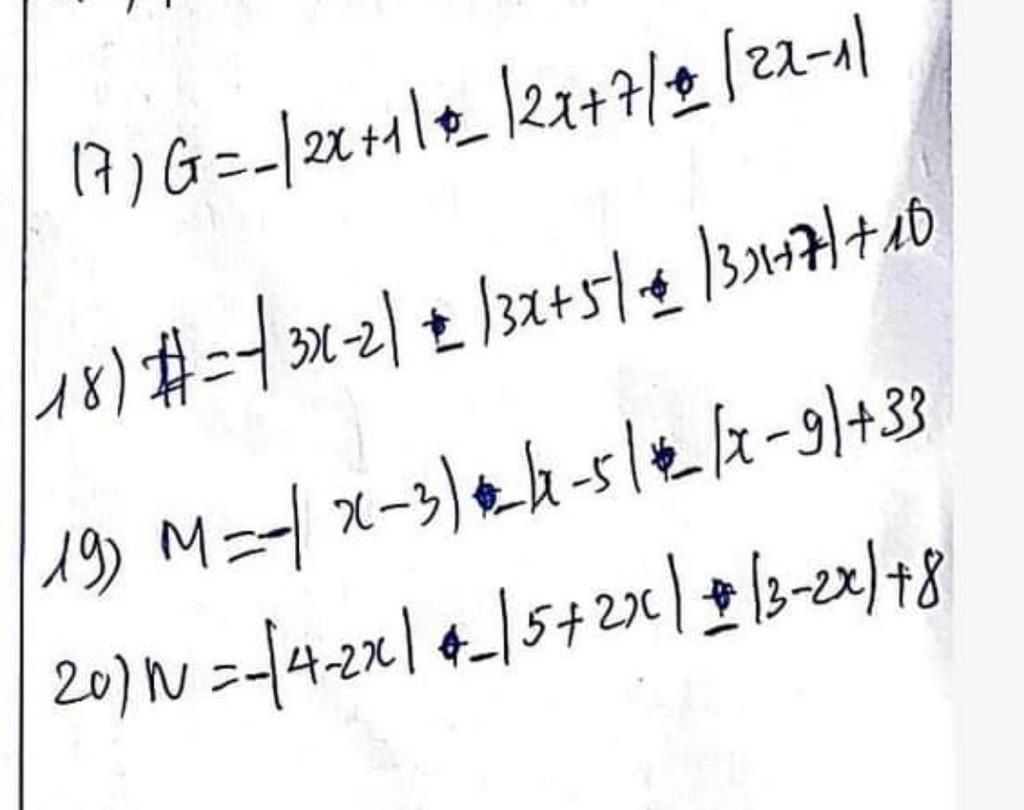 17) G = -|2x+1| - |2x+7| - |2x-1|
18) H = -|3x-2| - |3x+5| - |3x+7| + 10
19) M = -|x-3| - |x-5| - |x-9| + 33
20) N = -|4-2x| - |5+2x| - |3-2x| + 8